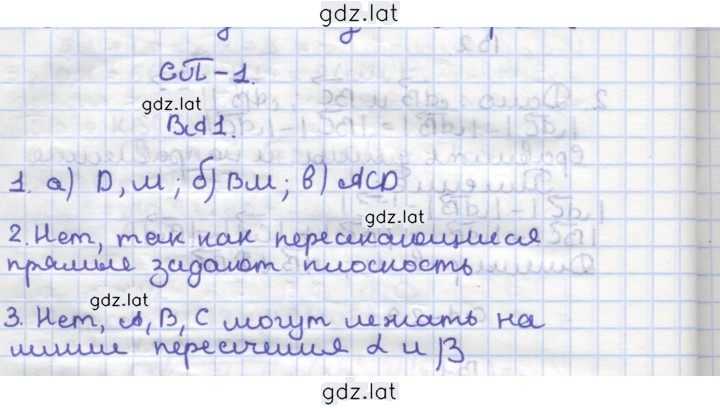 gdz.lat
СП-1.
gdz.lat
В А1.
1. а) D, М ; б) ВМ ; в) ACD
gdz.lat
2. Нет, так как пересекающиеся
прямые задают плоскость
gdz.lat
3. Нет, А, В, С могут лежать на
линии пересечения α и β
gdz.lat